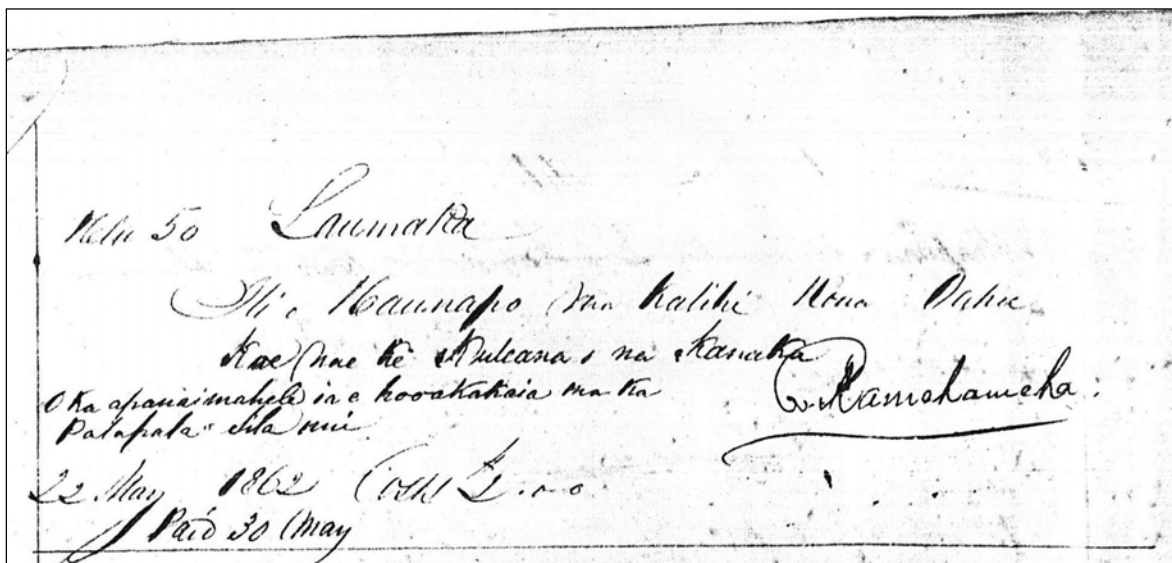 Helu 50 Laumaka
Ili o Kaunapo ma Kalihi Kona Oahu
Koe nae ke Kuleana o na Kanaka
O ka apana i mahele ia e hooakakaia ma ka
Palapala Sila nui
Kamehameha.
22 May 1862 Costs
Paid 30 May